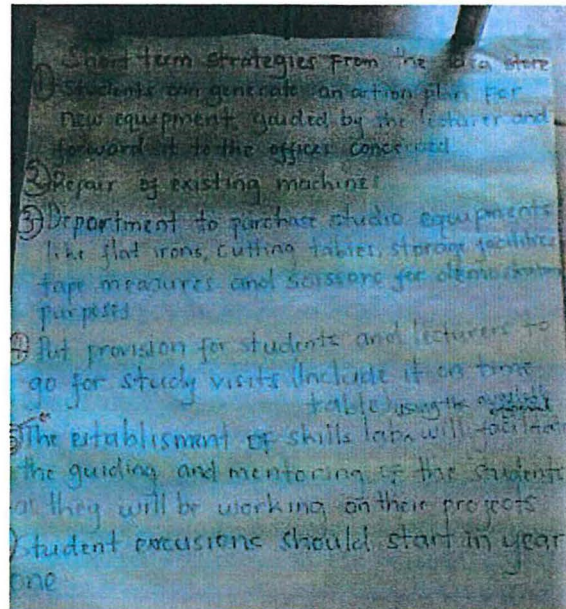 Short term strategies from the idea store
① Students can generate an action plan for
new equipment, guided by the lecturer and
forward it to the officer concerned
② Repair of existing machines
③ Department to purchase studio equipments
like flat irons, cutting tables, storage facilities
tape measures and scissors for demonstration
purposes
④ Put provision for students and lecturers to
go for study visits (Include it on time
table) using the available
The establisment of skills lab, will facilitate
the guiding and mentoring of the students
as they will be working on their projects
student excusions should start in year
one